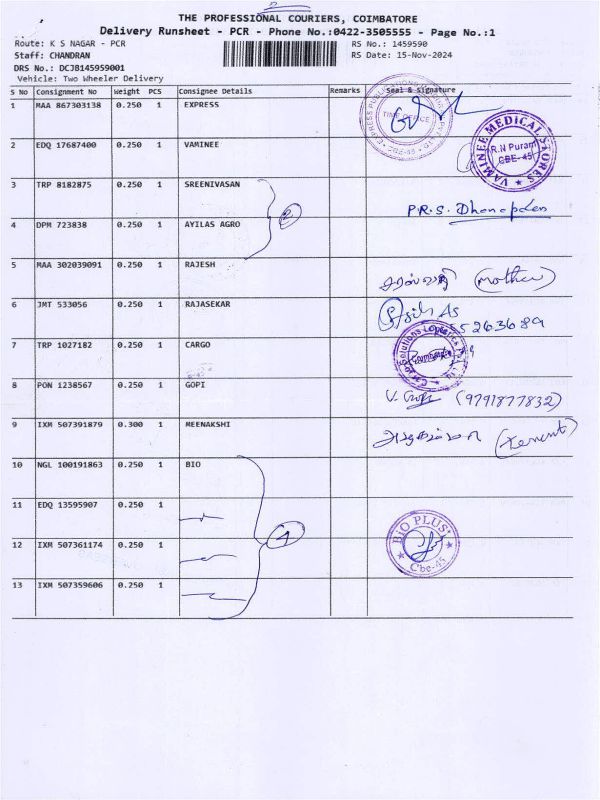 THE PROFESSIONAL COURIERS, COIMBATORE
Delivery Runsheet - PCR - Phone No.:0422-3505555 - Page No.:1
Route: K S NAGAR - PCR RS No.: 1459590
Staff: CHANDRAN RS Date: 15-Nov-2024
DRS No.: DCJB145959001
Vehicle: Two Wheeler Delivery
S No Consignment No Weight PCS Consignee Details Remarks Seal & Signature
1 MAA 867303138 0.250 1 EXPRESS
TIME OFFICE
2 EDQ 17687400 0.250 1 VAMINEE
VAMINEE MEDICAL STORES R.N Puram CBE-45
3 TRP 8182875 0.250 1 SREENIVASAN
2
P.R.S.
4 DPM 723838 0.250 1 AYILAS AGRO
5 MAA 302039091 0.250 1 RAJESH
(mother)
6 JMT 533056 0.250 1 RAJASEKAR
7 TRP 1027182 0.250 1 CARGO
8 PON 1238567 0.250 1 GOPI
V. Gopi (9791877832)
9 IXM 507391879 0.300 1 MEENAKSHI
(Tenent)
10 NGL 100191863 0.250 1 BIO
11 EDQ 13595907 0.250 1
4
BIO PLUS Cbe-45
12 IXM 507361174 0.250 1
13 IXM 507359606 0.250 1